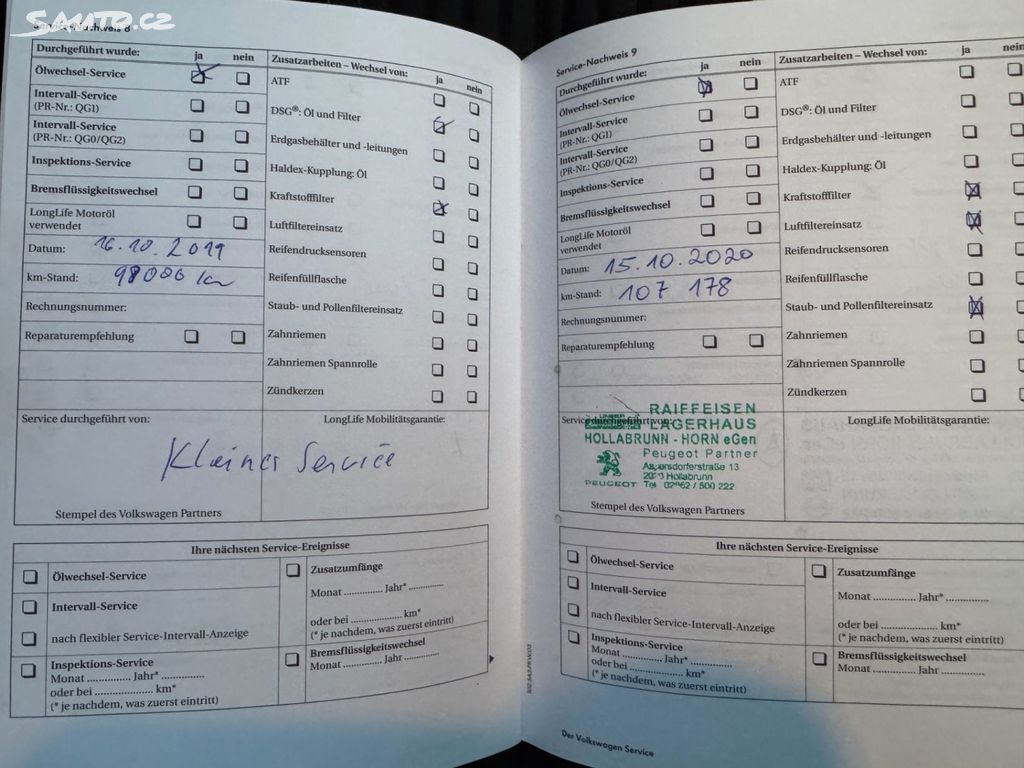 SAUTO.CZ
Service-Nachweis 8
Durchgeführt wurde: ja nein
Ölwechsel-Service
Intervall-Service
(PR-Nr.: QG1)
Intervall-Service
(PR-Nr.: QG0/QG2)
Inspektions-Service
Bremsflüssigkeitswechsel
LongLife Motoröl
verwendet
Datum: 16.10.2019
km-Stand: 98000 km
Rechnungsnummer:
Reparaturempfehlung
Zusatzarbeiten – Wechsel von: ja nein
ATF
DSG®: Öl und Filter
Erdgasbehälter und -leitungen
Haldex-Kupplung: Öl
Kraftstofffilter
Luftfiltereinsatz
Reifendrucksensoren
Reifenfüllflasche
Staub- und Pollenfiltereinsatz
Zahnriemen
Zahnriemen Spannrolle
Zündkerzen
Service durchgeführt von:
LongLife Mobilitätsgarantie:
Kleiner Service
Stempel des Volkswagen Partners
Ihre nächsten Service-Ereignisse
Ölwechsel-Service
Intervall-Service
nach flexibler Service-Intervall-Anzeige
Inspektions-Service
Monat ............ Jahr* ............
oder bei .................... km*
(* je nachdem, was zuerst eintritt)
Zusatzumfänge
Monat ............ Jahr* ............
oder bei .................... km*
(* je nachdem, was zuerst eintritt)
Bremsflüssigkeitswechsel
Monat ............ Jahr ............
Service-Nachweis 9
Durchgeführt wurde: ja nein
Ölwechsel-Service
Intervall-Service
(PR-Nr.: QG1)
Intervall-Service
(PR-Nr.: QG0/QG2)
Inspektions-Service
Bremsflüssigkeitswechsel
LongLife Motoröl
verwendet
Datum: 15.10.2020
km-Stand: 107 178
Rechnungsnummer:
Reparaturempfehlung
Zusatzarbeiten – Wechsel von: ja nein
ATF
DSG®: Öl und Filter
Erdgasbehälter und -leitungen
Haldex-Kupplung: Öl
Kraftstofffilter
Luftfiltereinsatz
Reifendrucksensoren
Reifenfüllflasche
Staub- und Pollenfiltereinsatz
Zahnriemen
Zahnriemen Spannrolle
Zündkerzen
Service durchgeführt von:
LongLife Mobilitätsgarantie:
RAIFFEISEN
LAGERHAUS
HOLLABRUNN - HORN eGen
Peugeot Partner
Aspersdorferstraße 13
Hollabrunn
PEUGEOT Tel 02962 / 500 222
Stempel des Volkswagen Partners
Ihre nächsten Service-Ereignisse
Ölwechsel-Service
Intervall-Service
nach flexibler Service-Intervall-Anzeige
Inspektions-Service
Monat ............ Jahr* ............
oder bei .................... km*
(* je nachdem, was zuerst eintritt)
Zusatzumfänge
Monat ............ Jahr* ............
oder bei .................... km*
(* je nachdem, was zuerst eintritt)
Bremsflüssigkeitswechsel
Monat ............ Jahr ............
Der Volkswagen Service